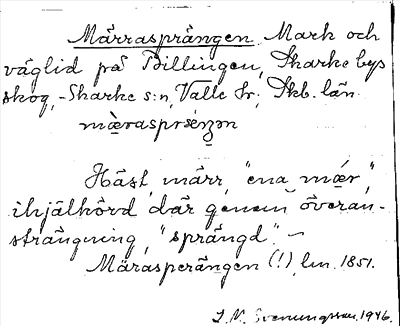 Märrasprängen. Mark och
väglid på Billingen, Skarke bys
skog, - Skarke s:n, Valle hr; Skb. län.
mæ̀raspræŋən
Häst, märr, "ena mǽr",
ihjälkörd där genom överan-
strängning, "sprängd". -
Märasperängen (!), lm. 1851.
1946.